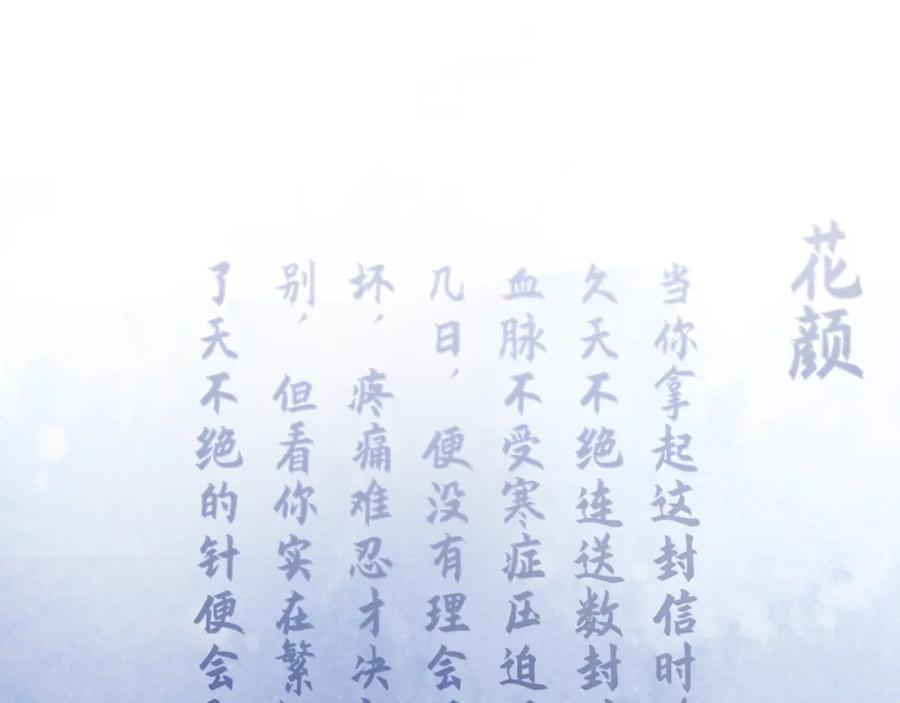 花颜
当你拿起这封信时
久天不绝连送数封
血脉不受寒症压迫
几日，便没有理会
坏，疼痛难忍才决
别，但看你实在繁
了天不绝的针便会